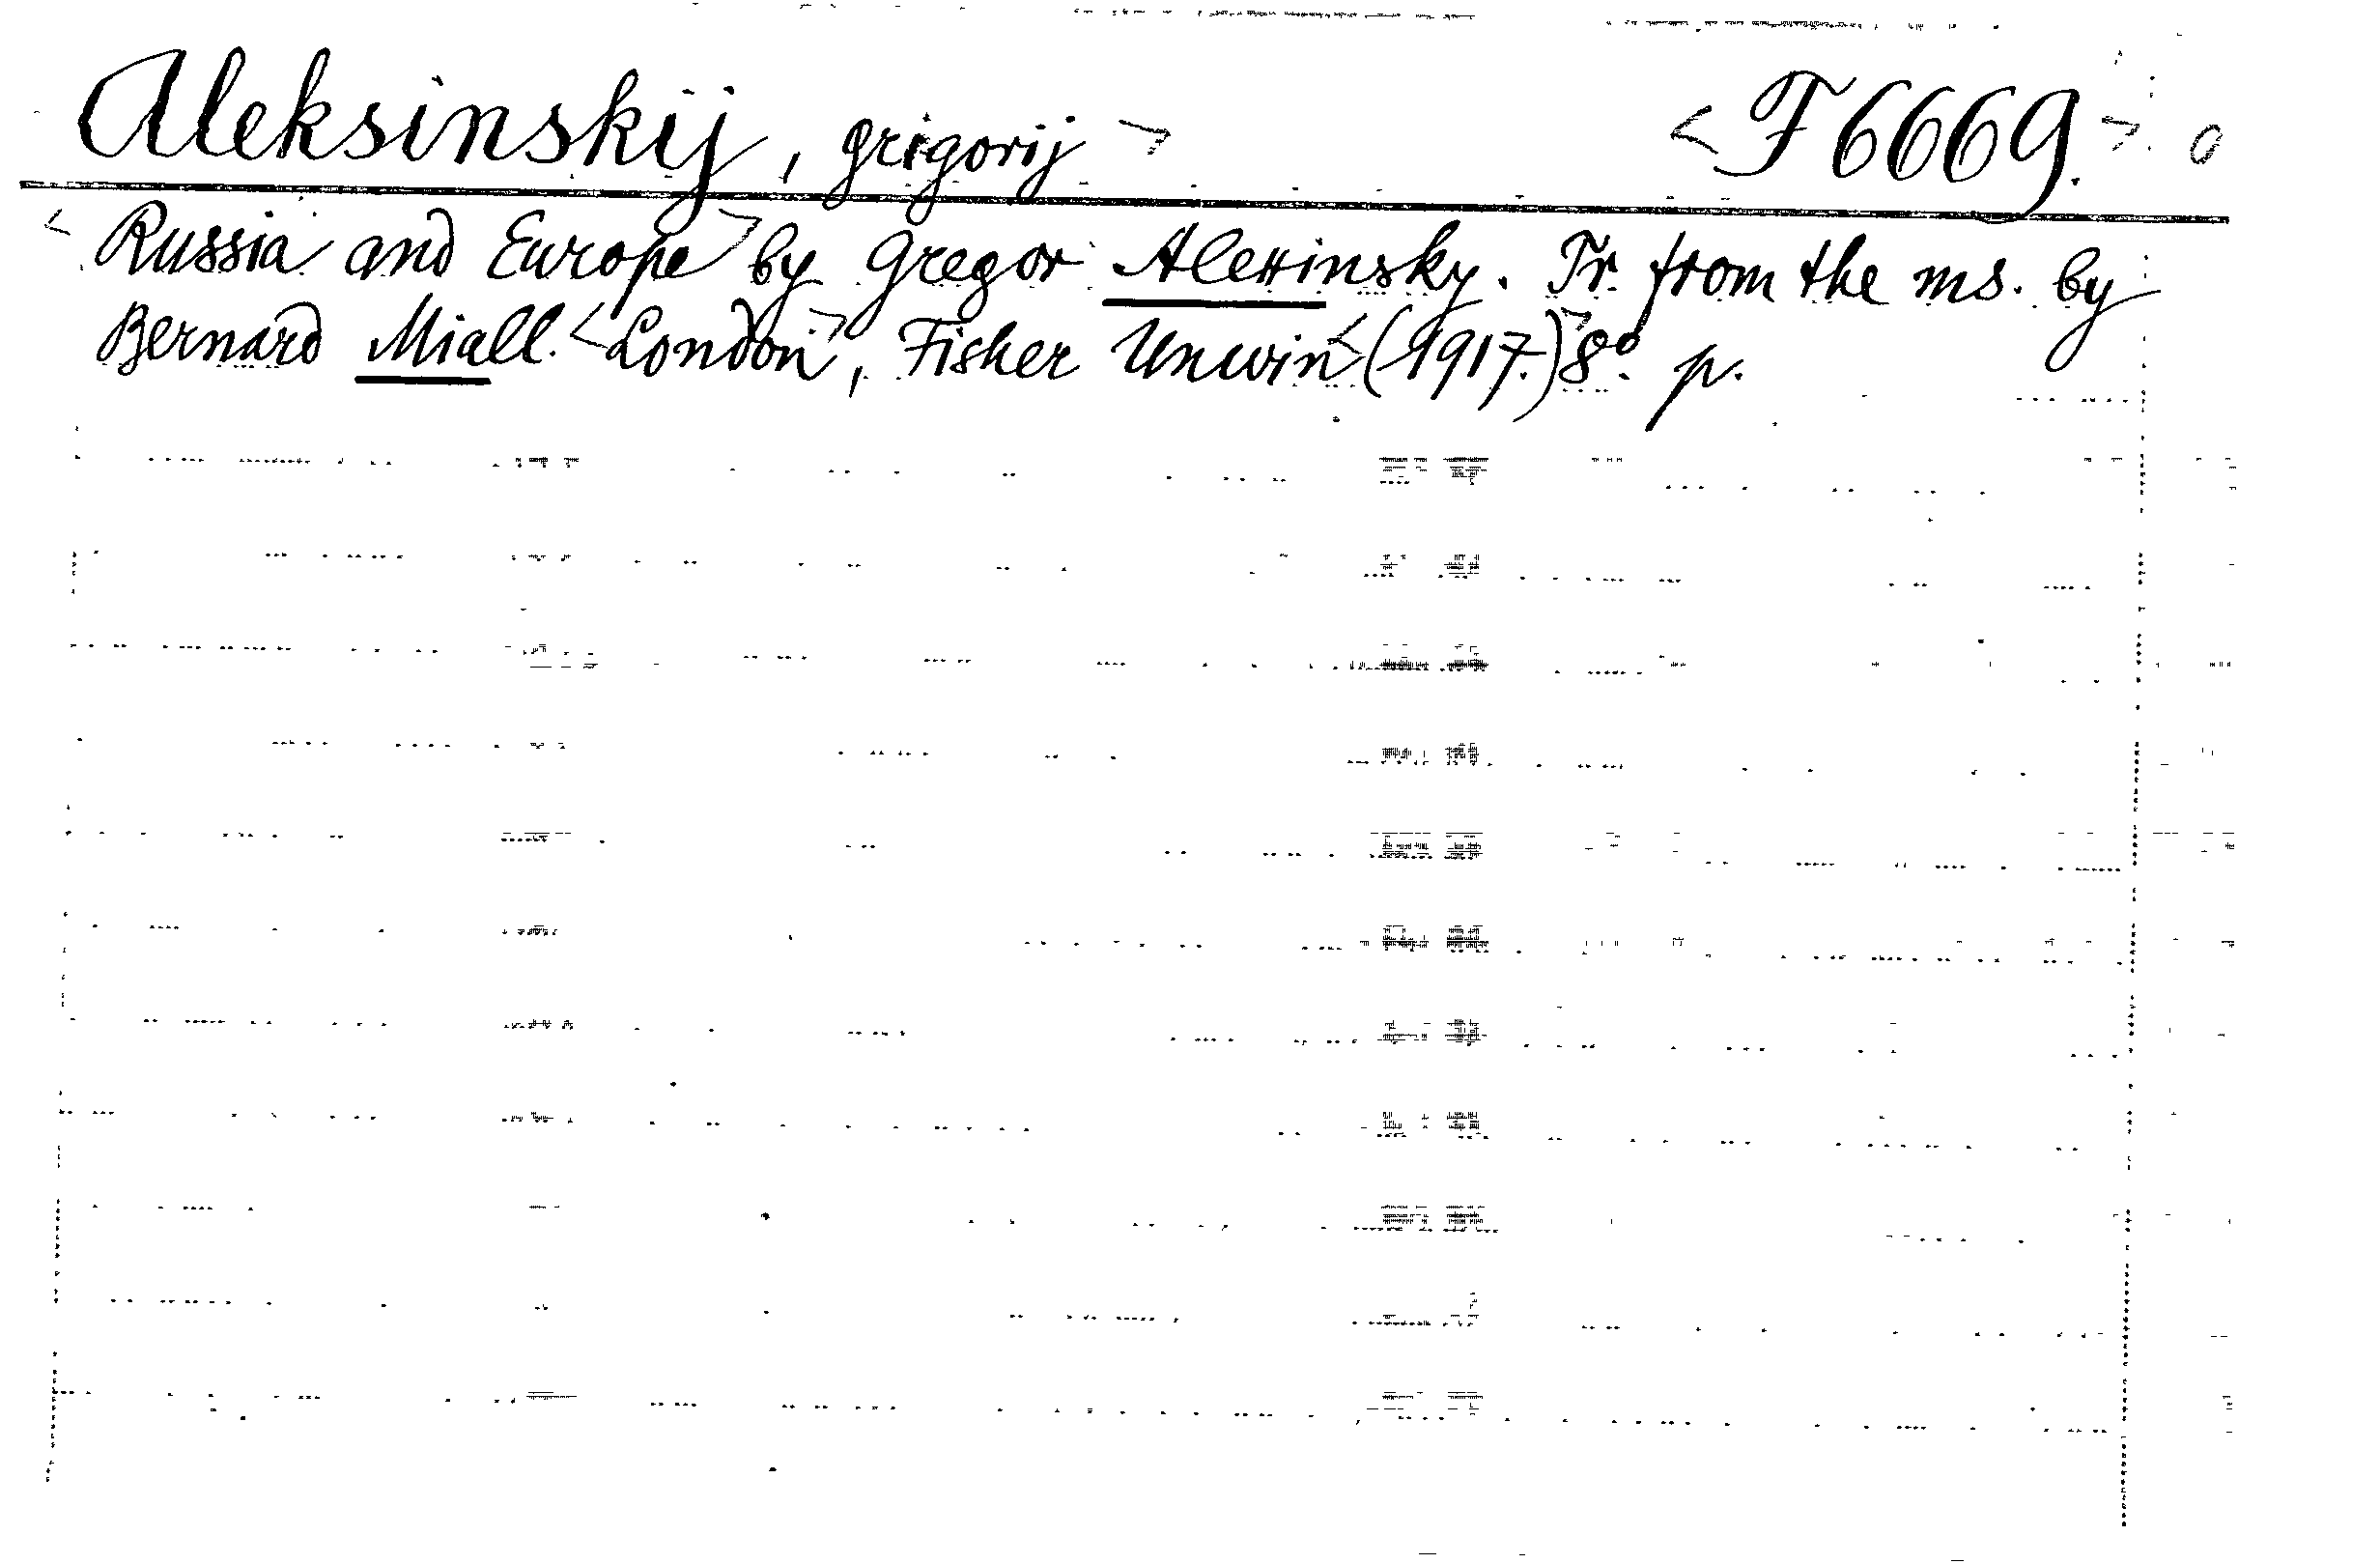 Aleksinskij, Grigorij > <F 6669.> 0
<Russia and Europe> by Gregor Alexinsky. Tr from the ms. by
Bernard Miall. <London>, Fisher Unwin <(1917.)> 8° p.